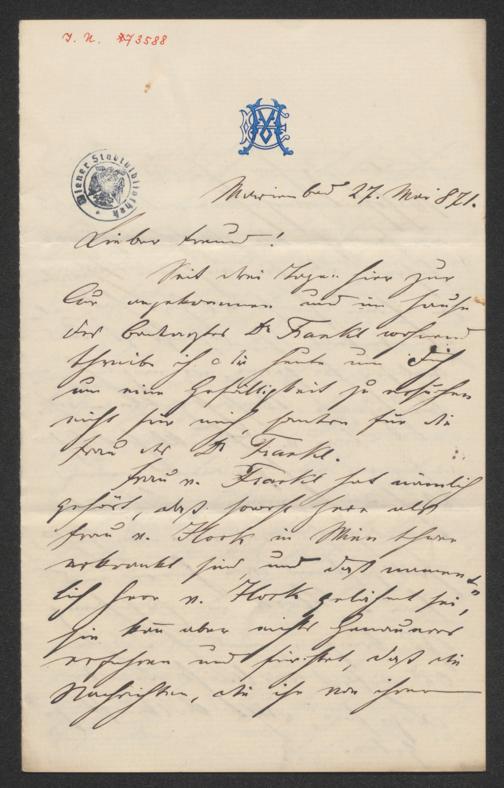 I. N. 173588
Wiener Stadtbibliothek
Marienbad 27. Mai 871.
Lieber Freund!
Seit drei Tagen hier zur
Cur angekommen und im Hause
des Badearztes Dr Frankl wohnend
schreibe ich dir heute um dich
um eine Gefälligkeit zu ersuchen
nicht für mich, sondern für die
Frau des Dr Frankl.
Frau v. Frankl hat nämlich
gehört, daß sowohl Herr als
Frau v. Hock in Wien schwer
erkrankt sind, und daß nament-
lich Herr v. Hock gelähmt sei,
sie kann aber nichts Genaueres
erfahren und fürchtet, daß die
Nachrichten, die ihr von ihrem